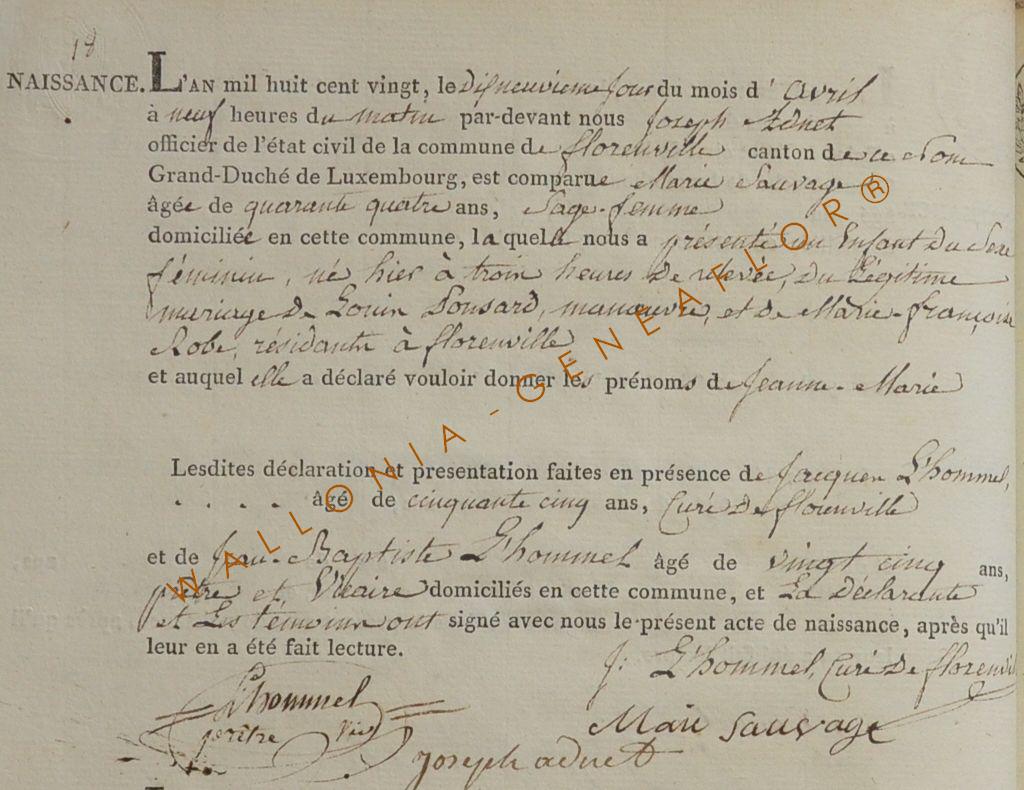 18
NAISSANCE. L'AN mil huit cent vingt, le dixneuvieme jour du mois d' avril
à neuf heures du matin par-devant nous Joseph Adnet
officier de l'état civil de la commune de florenville canton de ce Nom
Grand-Duché de Luxembourg, est comparue Marie Sauvage
âgée de quarante quatre ans, Sage-femme
domiciliée en cette commune, laquelle nous a présenté un Enfant du Sexe
féminin, né hier à trois heures de relevée, du Légitime
mariage de Louis Ponsard, manœuvre, et de Marie-françoise
Robe, résidants à florenville
et auquel elle a déclaré vouloir donner les prénoms de Jeanne-Marie
Lesdites déclaration et presentation faites en présence de Jacques L'hommel,
. . . . âgé de cinquante cinq ans, Curé de florenville
et de Jean-Baptiste L'hommel âgé de vingt cinq ans,
prêtre et Vicaire domiciliés en cette commune, et La Déclarante
et Les témoins ont signé avec nous le présent acte de naissance, après qu'il
leur en a été fait lecture.
J: L'hommel, Curé de florenvil
L'hommel
prêtre Vic
Marie Sauvage
joseph adnet
WALLONIA-GENEAFLOR®